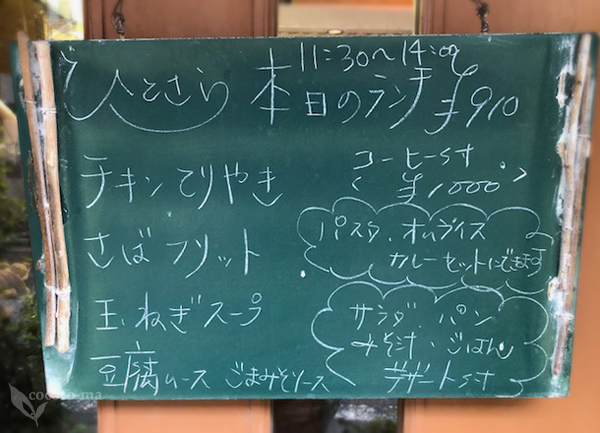 11:30～14:00
ひとさら 本日のランチ ¥910
コーヒー付
< ¥1000 >
チキンてりやき
さばフリット
玉ねぎスープ
豆腐ムース ごまみそソース
パスタ、オムライス
カレーセットにできます
サラダ、パン
みそ汁、ごはん
デザート付
cocoro-ma